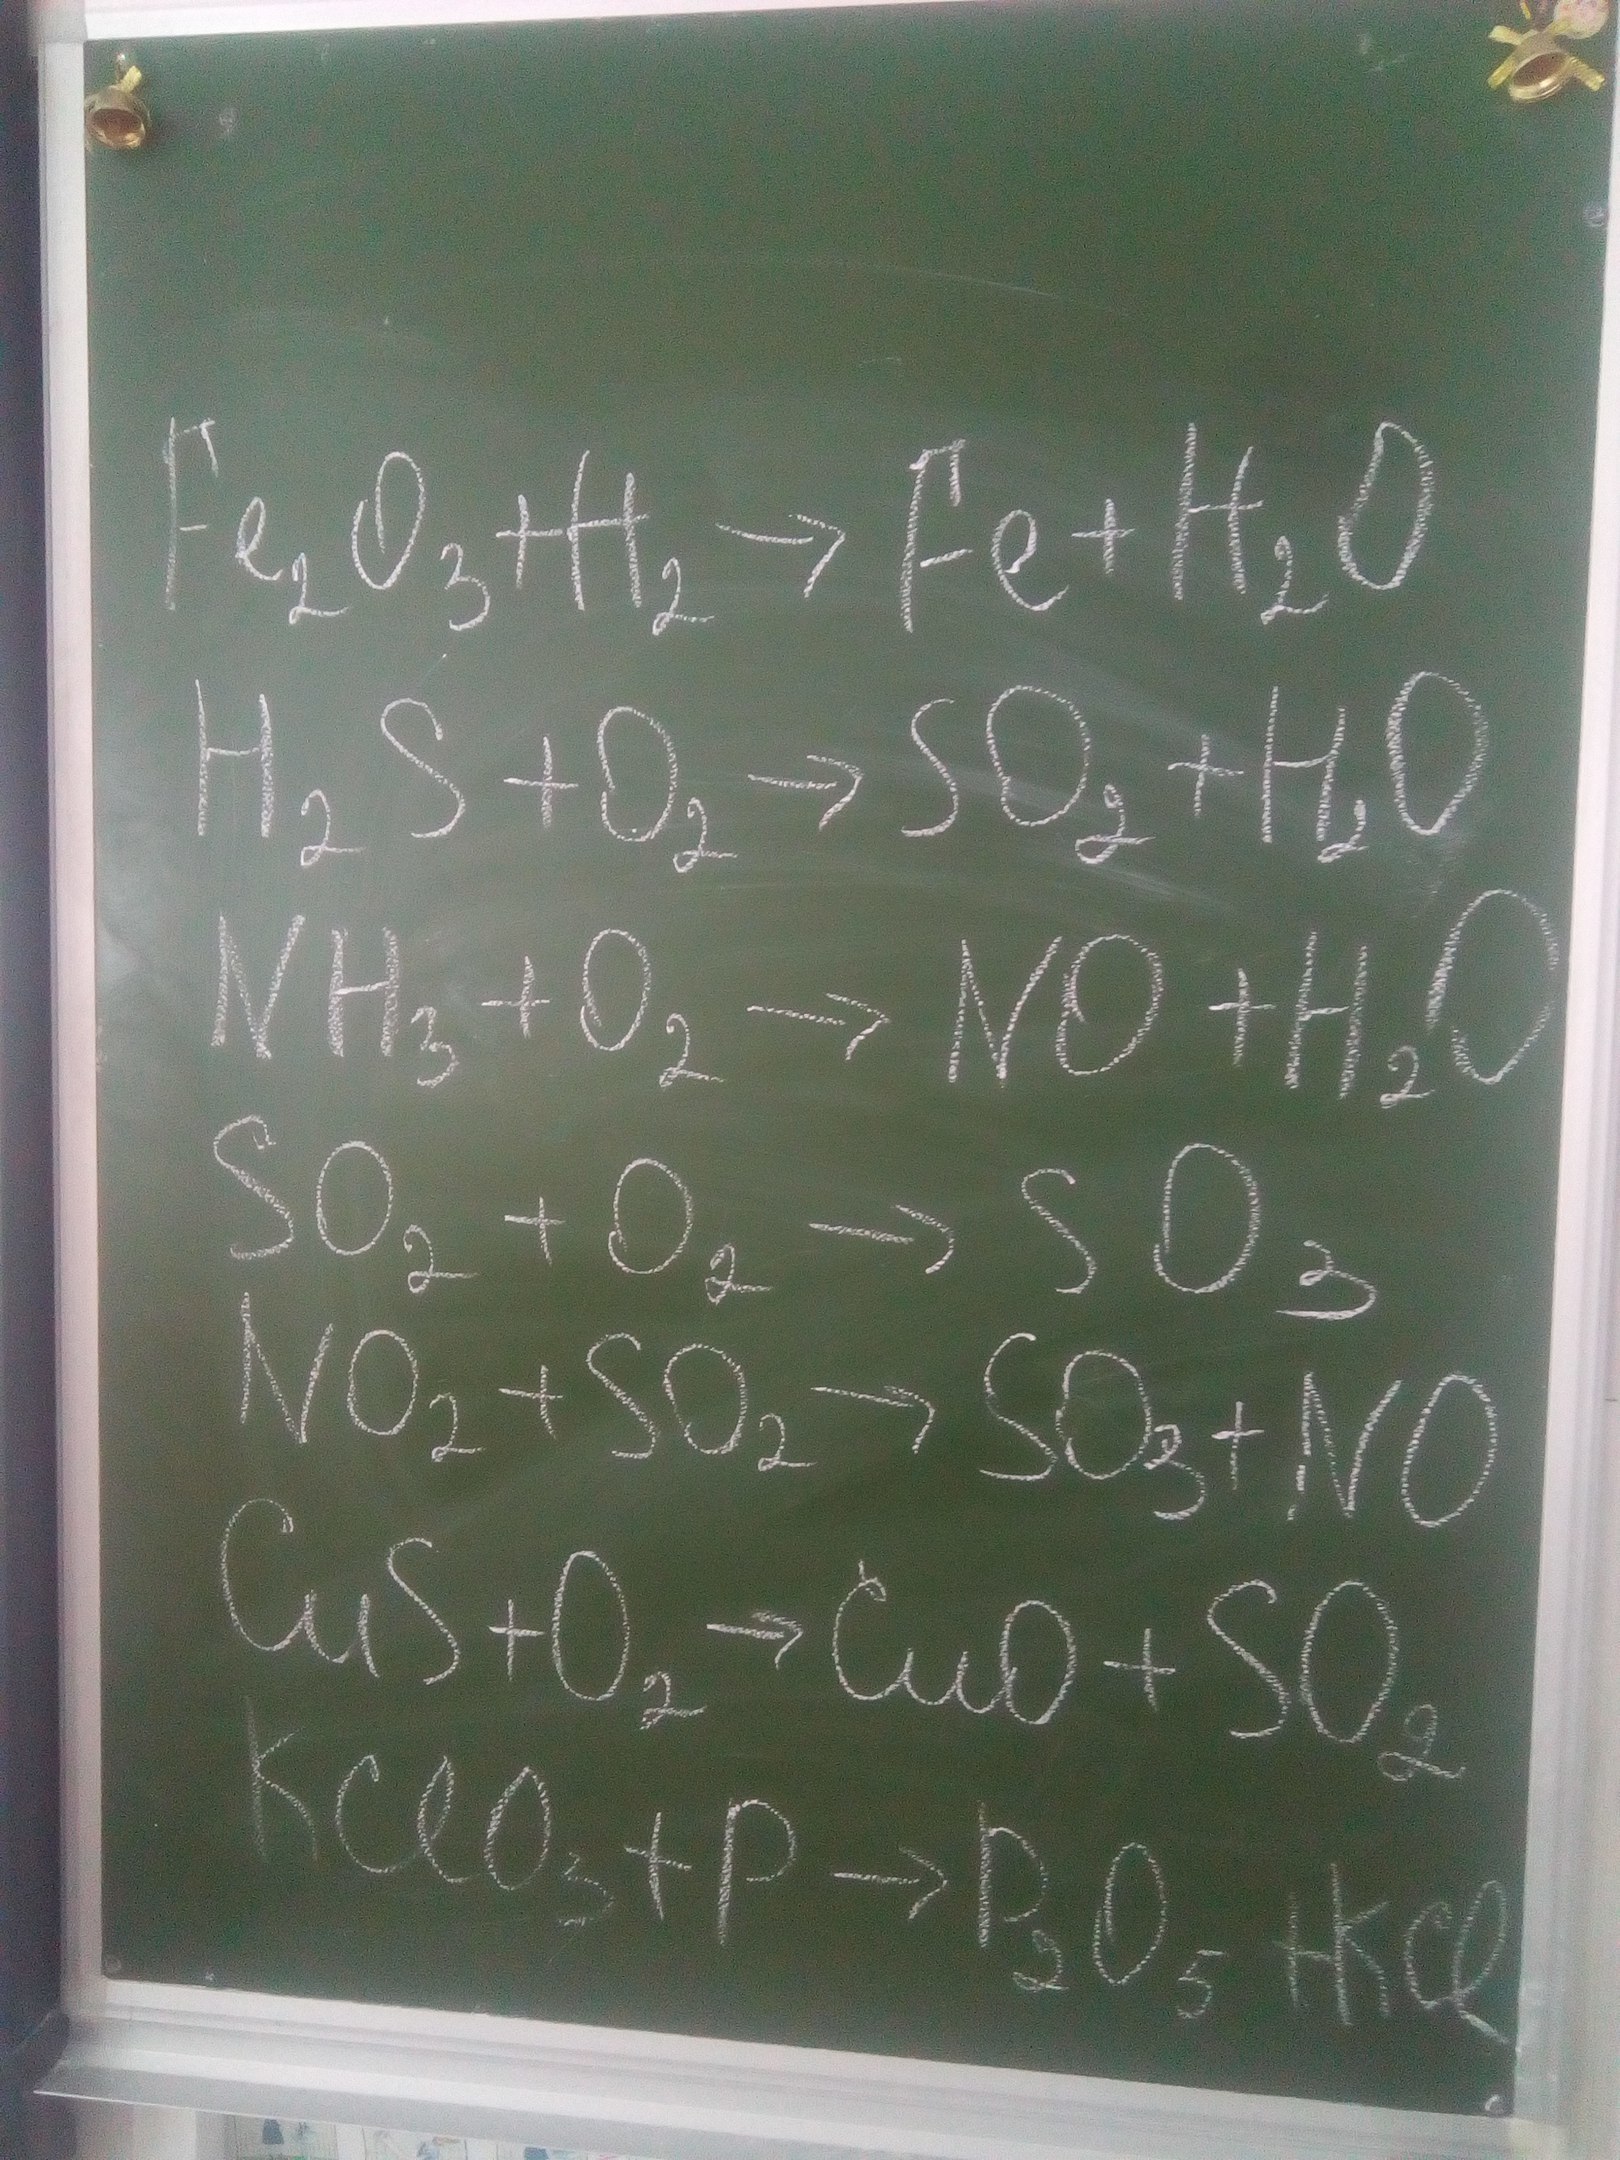 Fe₂O₃+H₂ → Fe+H₂O
H₂S+O₂ → SO₂+H₂O
NH₃+O₂ → NO+H₂O
SO₂+O₂ → SO₃
NO₂+SO₂ → SO₃+NO
CuS+O₂ → CuO+SO₂
KClO₃+P → P₂O₅+KCl